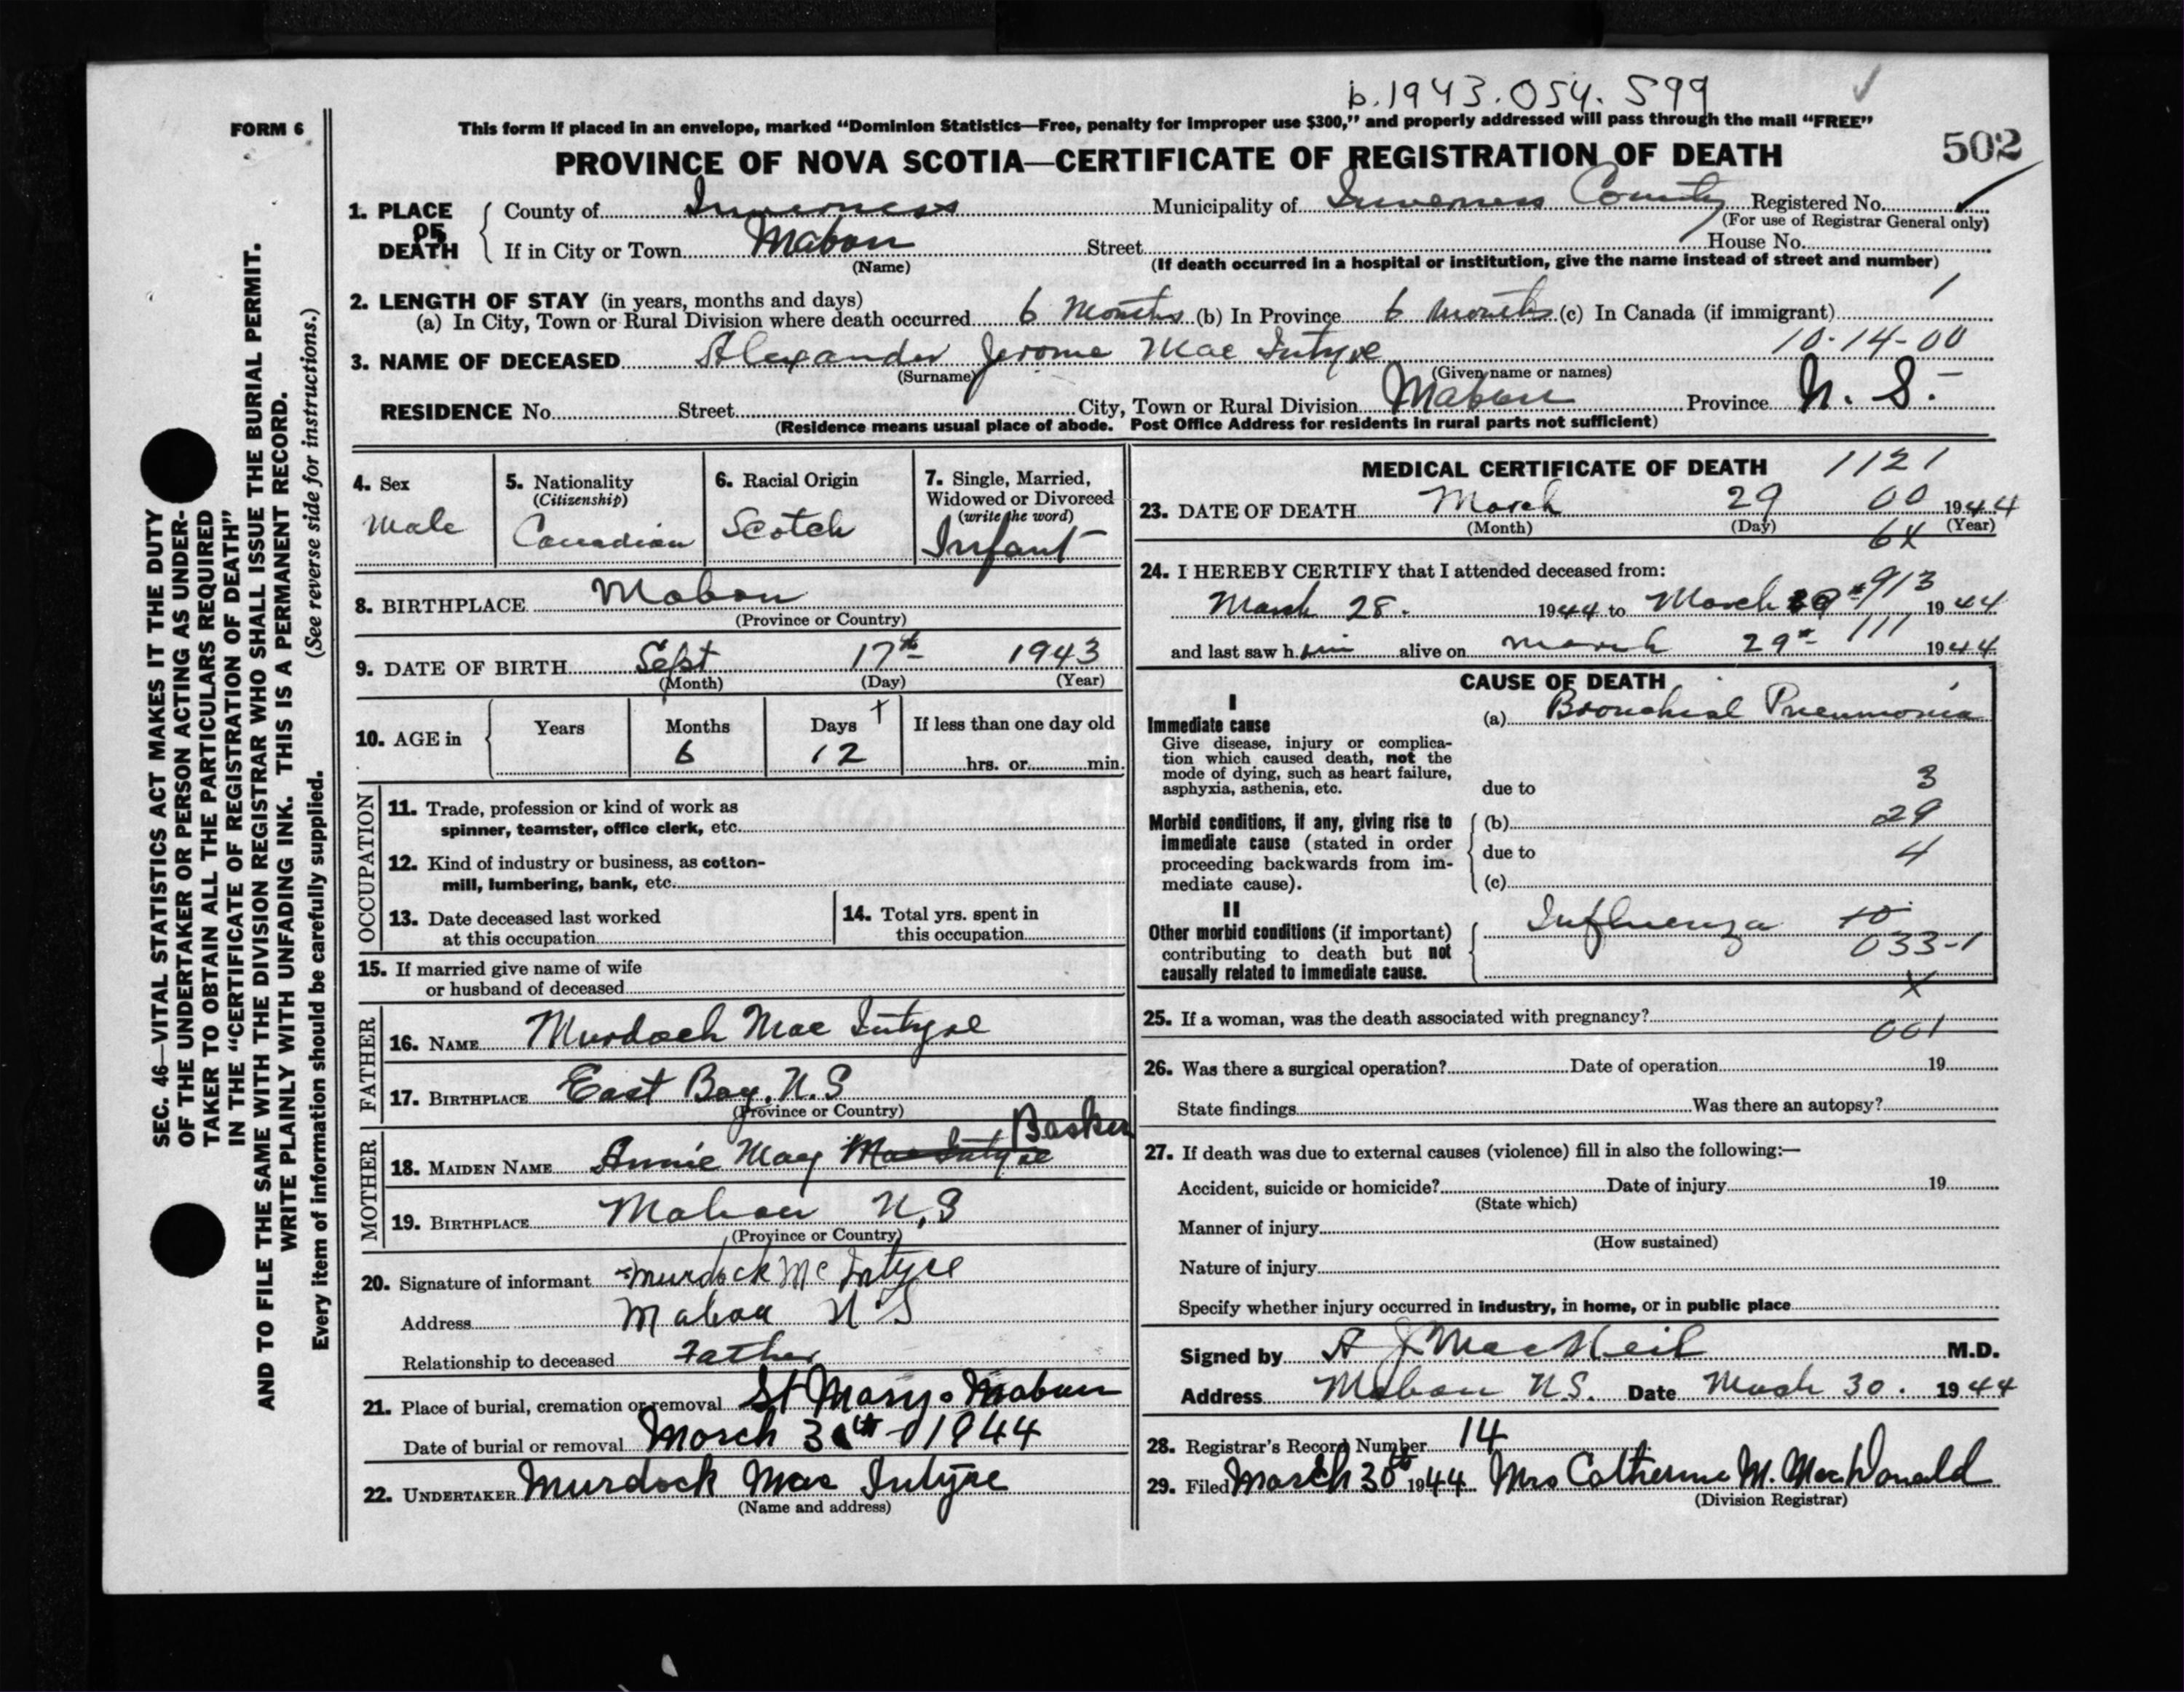 b.1943.054.599
FORM 6
This form if placed in an envelope, marked “Dominion Statistics—Free, penalty for improper use $300,” and properly addressed will pass through the mail “FREE”
PROVINCE OF NOVA SCOTIA—CERTIFICATE OF REGISTRATION OF DEATH
502
1. PLACE OF DEATH
County of Inverness Municipality of Inverness County Registered No.
(For use of Registrar General only)
If in City or Town Mabou Street House No.
(Name) (If death occurred in a hospital or institution, give the name instead of street and number)
2. LENGTH OF STAY (in years, months and days)
(a) In City, Town or Rural Division where death occurred 6 Months (b) In Province 6 months (c) In Canada (if immigrant)
10-14-00
3. NAME OF DECEASED Alexander Jerome Mac Intyre
(Surname) (Given name or names)
RESIDENCE No. Street City, Town or Rural Division Mabou Province N. S.
(Residence means usual place of abode. Post Office Address for residents in rural parts not sufficient)
SEC. 46—VITAL STATISTICS ACT MAKES IT THE DUTY
OF THE UNDERTAKER OR PERSON ACTING AS UNDER-
TAKER TO OBTAIN ALL THE PARTICULARS REQUIRED
IN THE “CERTIFICATE OF REGISTRATION OF DEATH”
AND TO FILE THE SAME WITH THE DIVISION REGISTRAR WHO SHALL ISSUE THE BURIAL PERMIT.
WRITE PLAINLY WITH UNFADING INK. THIS IS A PERMANENT RECORD.
Every item of information should be carefully supplied. (See reverse side for instructions.)
4. Sex
Male
5. Nationality
(Citizenship)
Canadian
6. Racial Origin
Scotch
7. Single, Married,
Widowed or Divorced
(write the word)
Infant
8. BIRTHPLACE Mabou
(Province or Country)
9. DATE OF BIRTH Sept 17th 1943
(Month) (Day) (Year)
10. AGE in Years Months Days If less than one day old
6 12 hrs. or min.
OCCUPATION
11. Trade, profession or kind of work as
spinner, teamster, office clerk, etc.
12. Kind of industry or business, as cotton-
mill, lumbering, bank, etc.
13. Date deceased last worked
at this occupation
14. Total yrs. spent in
this occupation
15. If married give name of wife
or husband of deceased
FATHER
16. NAME Murdoch Mac Intyre
17. BIRTHPLACE East Bay, N.S
(Province or Country)
MOTHER
18. MAIDEN NAME Annie May Mac Intyre
19. BIRTHPLACE Mabou N.S
(Province or Country)
20. Signature of informant Murdock Mc Intyre
Address Mabou N S
Relationship to deceased Father
21. Place of burial, cremation or removal St Marys Mabou
Date of burial or removal March 1944
22. UNDERTAKER Murdock Mac Intyre
(Name and address)
MEDICAL CERTIFICATE OF DEATH 1121
23. DATE OF DEATH March 29 00 1944
(Month) (Day) (Year)
6X
24. I HEREBY CERTIFY that I attended deceased from:
913
March 28. 1944 to March 1944
and last saw him alive on March 29th 111 1944
CAUSE OF DEATH
I
Immediate cause
Give disease, injury or complica-
tion which caused death, not the
mode of dying, such as heart failure,
asphyxia, asthenia, etc.
(a) Bronchial Pneumonia
due to 3
Morbid conditions, if any, giving rise to
immediate cause (stated in order
proceeding backwards from im-
mediate cause).
(b) 29
due to 4
(c)
II
Other morbid conditions (if important)
contributing to death but not
causally related to immediate cause.
Influenza 10
033-1
X
25. If a woman, was the death associated with pregnancy?
001
26. Was there a surgical operation? Date of operation 19
State findings Was there an autopsy?
27. If death was due to external causes (violence) fill in also the following:—
Accident, suicide or homicide? Date of injury 19
(State which)
Manner of injury
(How sustained)
Nature of injury
Specify whether injury occurred in industry, in home, or in public place
Signed by A J MacNeil M.D.
Address Mabou N.S. Date March 30. 1944
28. Registrar's Record Number 14
29. Filed March 30th 1944 Mrs Catherine M. MacDonald
(Division Registrar)